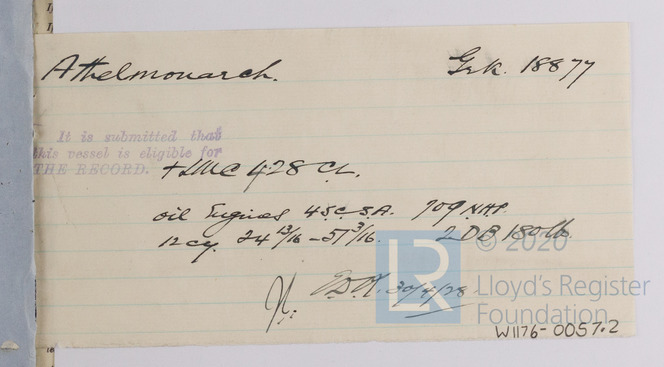 Athelmonarch. Grk. 18877
It is submitted that
this vessel is eligible for
THE RECORD. + LMC 4.28 CL.
Oil Engines 4S.C.S.A. 709 N.H.P.
12 cy. 24 13/16 - 51 3/16. 2 DB 180 lb.
30/4/28
LR
© 2020
Lloyd's Register
Foundation
W1176-0057.2